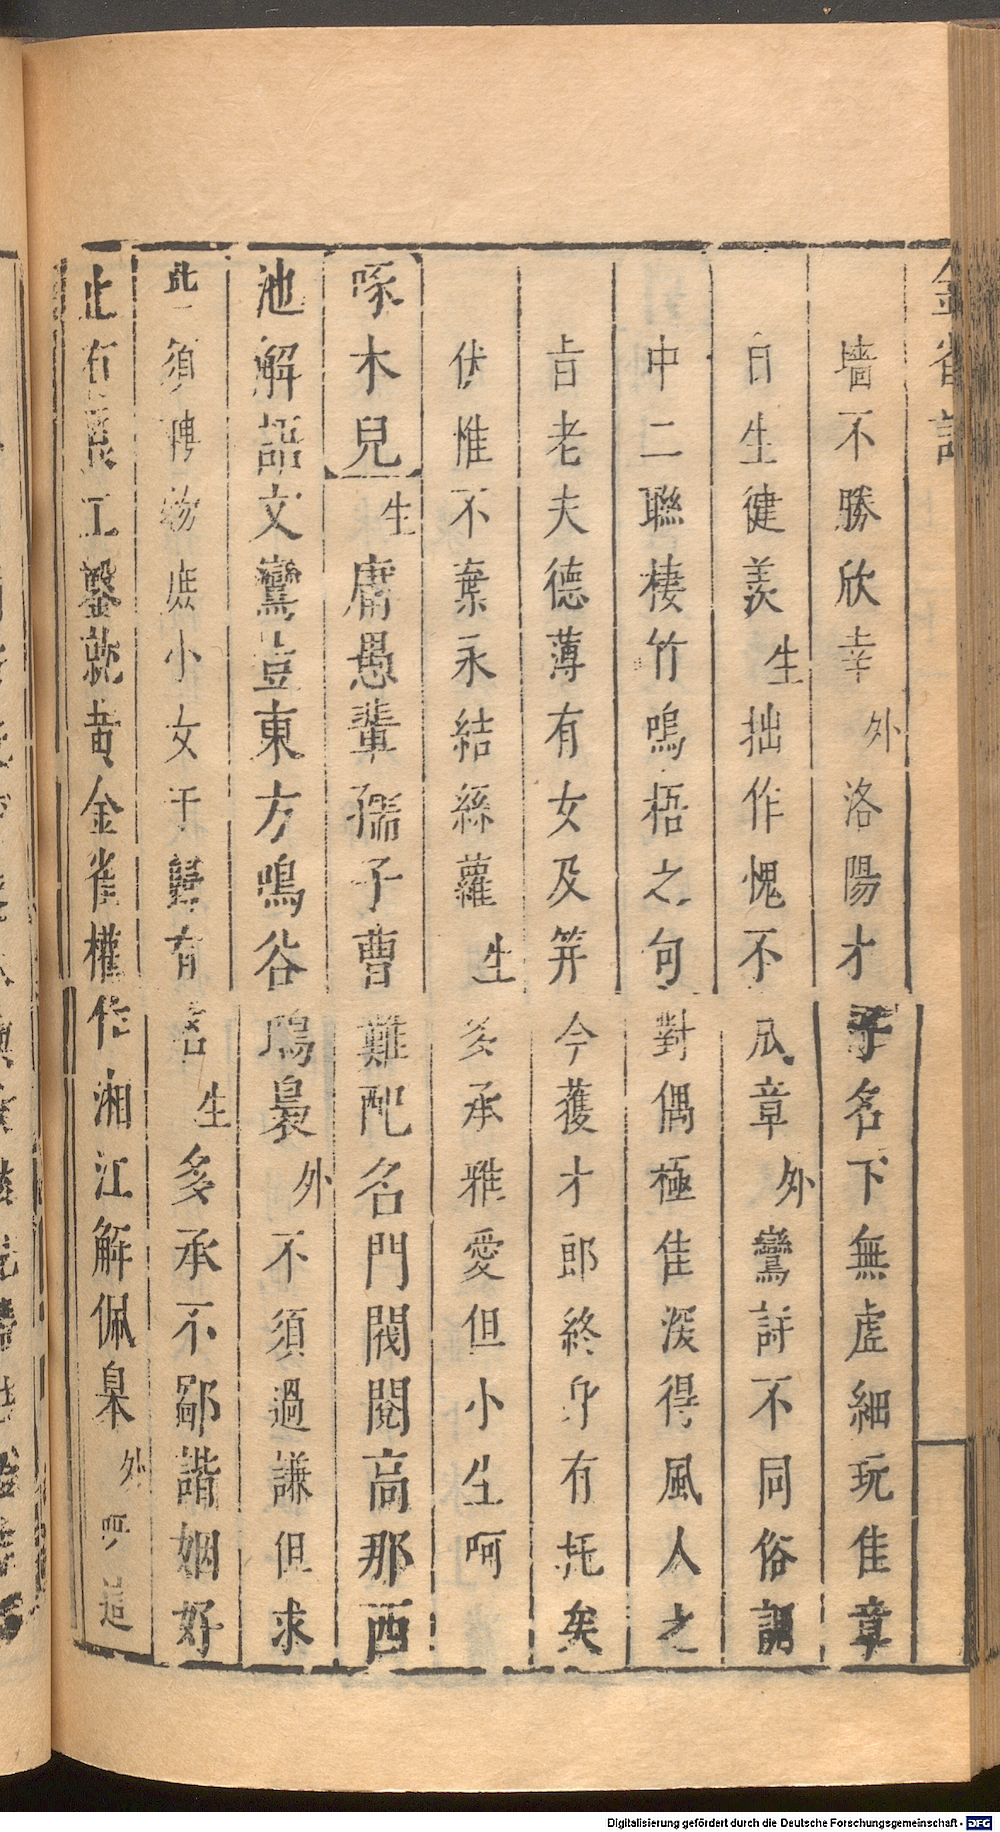 金雀記
墻不勝欣幸外洛陽才子名下無虛細玩佳章
自生健羨生拙作愧不成章外鸞評不同俗調
中二聯棲竹鳴梧之句對偶極佳深得風人之
旨老夫德薄有女及笄今獲才郎終身有托矣
伏惟不棄永結絲蘿生多承雅愛但小生呵
啄木兒生庸愚輩孺子曹難配名門閥閱高那西
池解語文鸞豈東方鳴谷鴟梟外不須過謙但求
一須聘物庶小女于歸有吉生多承不鄙諧姻好
此有良工鑿就黄金雀權作湘江解佩臯外呀這
Digitalisierung gefördert durch die Deutsche Forschungsgemeinschaft - DFG